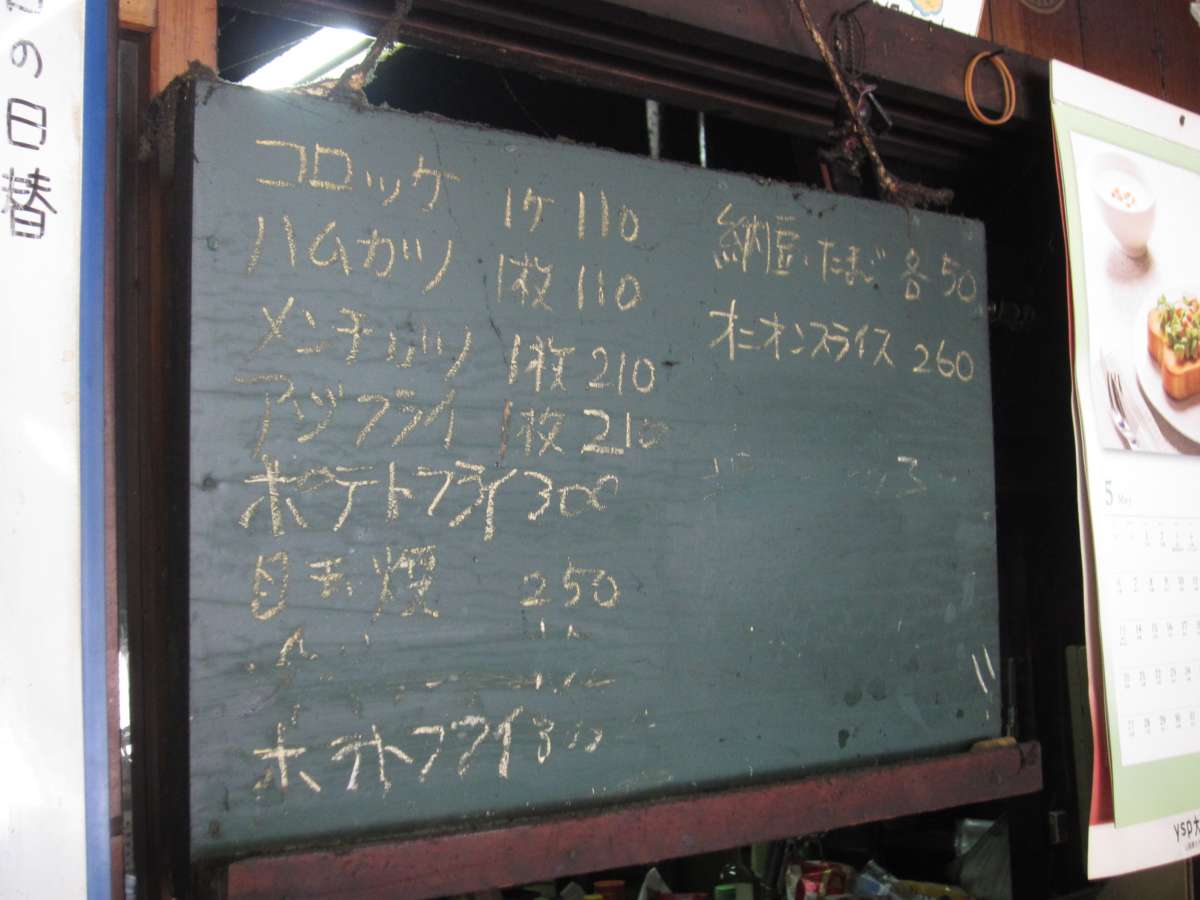 の日替
コロッケ 1ケ 110
ハムカツ 1枚 110
メンチカツ 1枚 210
アジフライ 1枚 210
ポテトフライ 300
目玉焼 250
ポテトフライ 300
納豆・たまご 各50
オニオンスライス 260
5 May
ysp